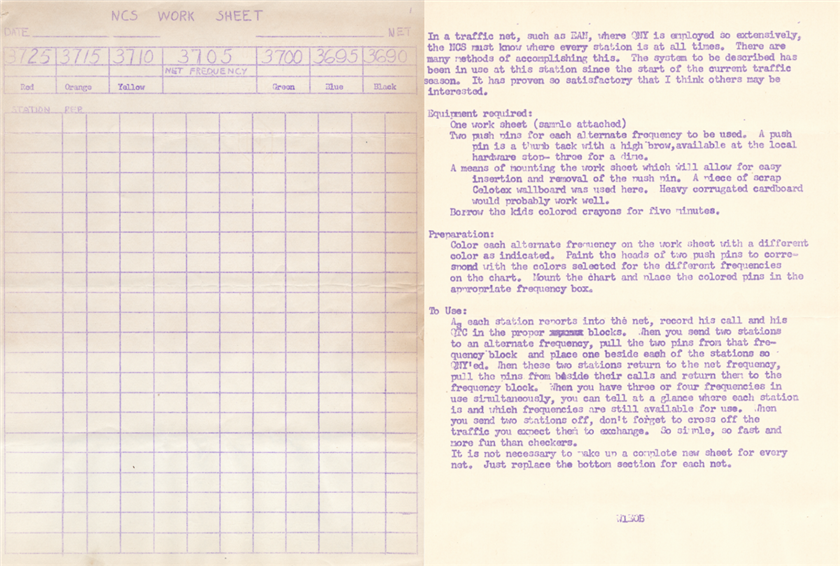 NCS WORK SHEET
DATE NET
3725 3715 3710 3705 3700 3695 3690
NET FREQUENCY
Red Orange Yellow Green Blue Black
STATION PER
In a traffic net, such as EAN, where QNY is employed so extensively,
the NCS must know where every station is at all times. There are
many methods of accomplishing this. The system to be described has
been in use at this station since the start of the current traffic
season. It has proven so satisfactory that I think others may be
interested.
Equipment required:
One work sheet (sample attached)
Two push pins for each alternate frequency to be used. A push
pin is a thumb tack with a high brow, available at the local
hardware stop- three for a dime.
A means of mounting the work sheet which will allow for easy
insertion and removal of the push pin. A piece of scrap
Celotex wallboard was used here. Heavy corrugated cardboard
would probably work well.
Borrow the kids colored crayons for five minutes.
Preparation:
Color each alternate frequency on the work sheet with a different
color as indicated. Paint the heads of two push pins to corre-
spond with the colors selected for the different frequencies
on the chart. Mount the chart and place the colored pins in the
appropriate frequency box.
To Use:
As each station reports into the net, record his call and his
QTC in the proper blocks. When you send two stations
to an alternate frequency, pull the two pins from that fre-
quency block and place one beside each of the stations so
QNY'ed. When these two stations return to the net frequency,
pull the pins from beside their calls and return them to the
frequency block. When you have three or four frequencies in
use simultaneously, you can tell at a glance where each station
is and which frequencies are still available for use. When
you send two stations off, don't forget to cross off the
traffic you expect them to exchange. So simple, so fast and
more fun than checkers.
It is not necessary to make up a complete new sheet for every
net. Just replace the bottom section for each net.